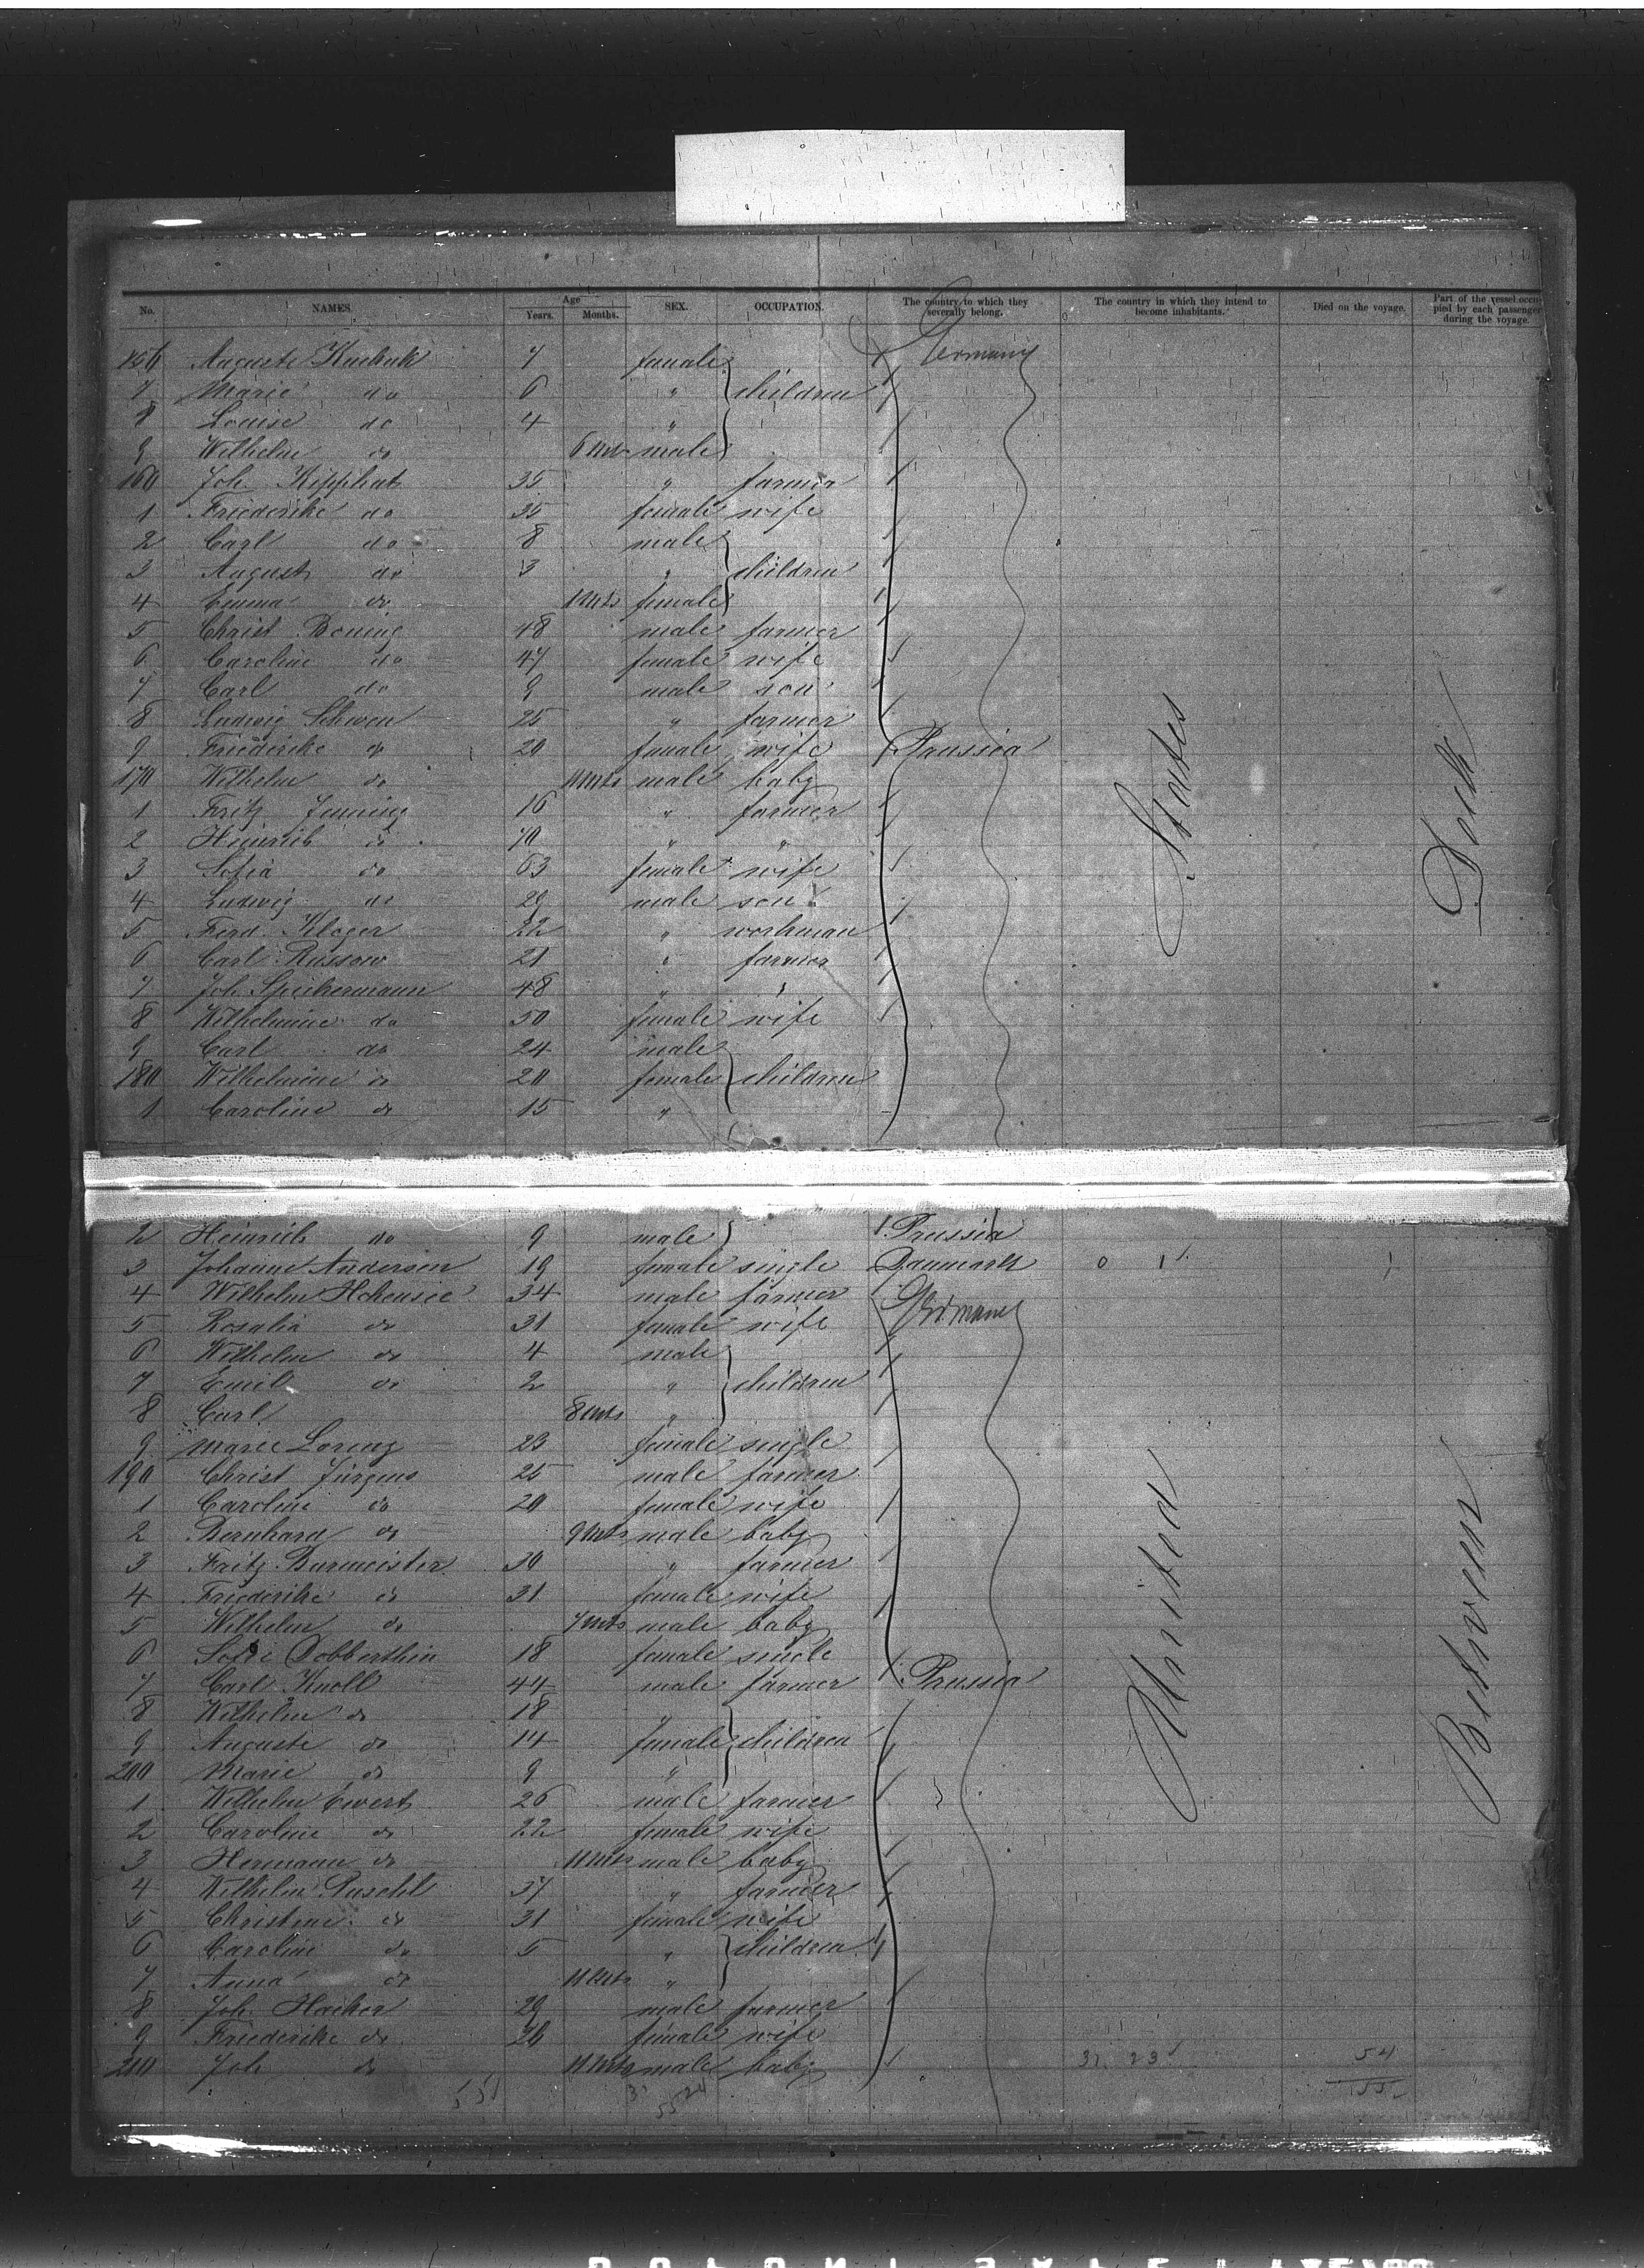 No. NAMES Age Years. Months. SEX. OCCUPATION. The country to which they severally belong. The country in which they intend to become inhabitants. Died on the voyage. Part of the vessel occupied by each passenger during the voyage.
156 Auguste 7 female Germany
7 Marie do 6 " children
8 Louise do 4 "
9 Wilhelm do 6 Mts male
160 Joh. Kipphat 35 " farmer
1 Friederike do 35 female wife
2 Carl do 8 male
3 August do 3 " children
4 Emma do 1 Mts female
5 Christ Boning 48 male farmer
6 Caroline do 47 female wife
7 Carl do 9 male son
8 Ludwig Schwen 25 " farmer
9 Friederike do 20 female wife Prussia
170 Wilhelm do 11 Mts male baby
1 Fritz Jenning 16 " farmer
2 Heinrich do 70 " "
3 Sofia do 63 female wife
4 Ludwig do 29 male son
5 Ferd. Kloger 22 " workman
6 Carl Russow 21 " farmer
7 Joh. Spickermann 48 " "
8 Wilhelmine do 50 female wife
9 Carl do 24 male
180 Wilhelmine do 20 female children
1 Caroline do 15 "
States
Deck
2 Heinrich do 9 male Prussia
3 Johanne Andersen 19 female single Danmark 0 1
4 Wilhelm Hohensee 34 male farmer Germany
5 Rosalia do 31 female wife
6 Wilhelm do 4 male
7 Emil do 2 " children
8 Carl 8 Mts "
9 Marie Lorenz 23 female single
190 Christ Jürgens 25 male farmer
1 Caroline do 20 female wife
2 Bernhard do 9 Mts male baby
3 Fritz Burmeister 30 " farmer
4 Friederike do 31 female wife
5 Wilhelm do 7 Mts male baby
6 Sofie Dobberthin 18 female single
7 Carl Knoll 44 male farmer Prussia
8 Wilhelm do 18 "
9 Auguste do 14 female children
200 Marie do 9 "
1 Wilhelm Ewert 26 male farmer
2 Caroline do 22 female wife
3 Hermann do 11 Mts male baby
4 Wilhelm Puschl 37 " farmer
5 Christine do 31 female wife
6 Caroline do 5 " children
7 Anna do 11 Mts "
8 Joh. Hacker 29 male farmer
9 Friederike do 26 female wife
210 Joh do 11 Mts male baby 31. 23 54
55
United
Between